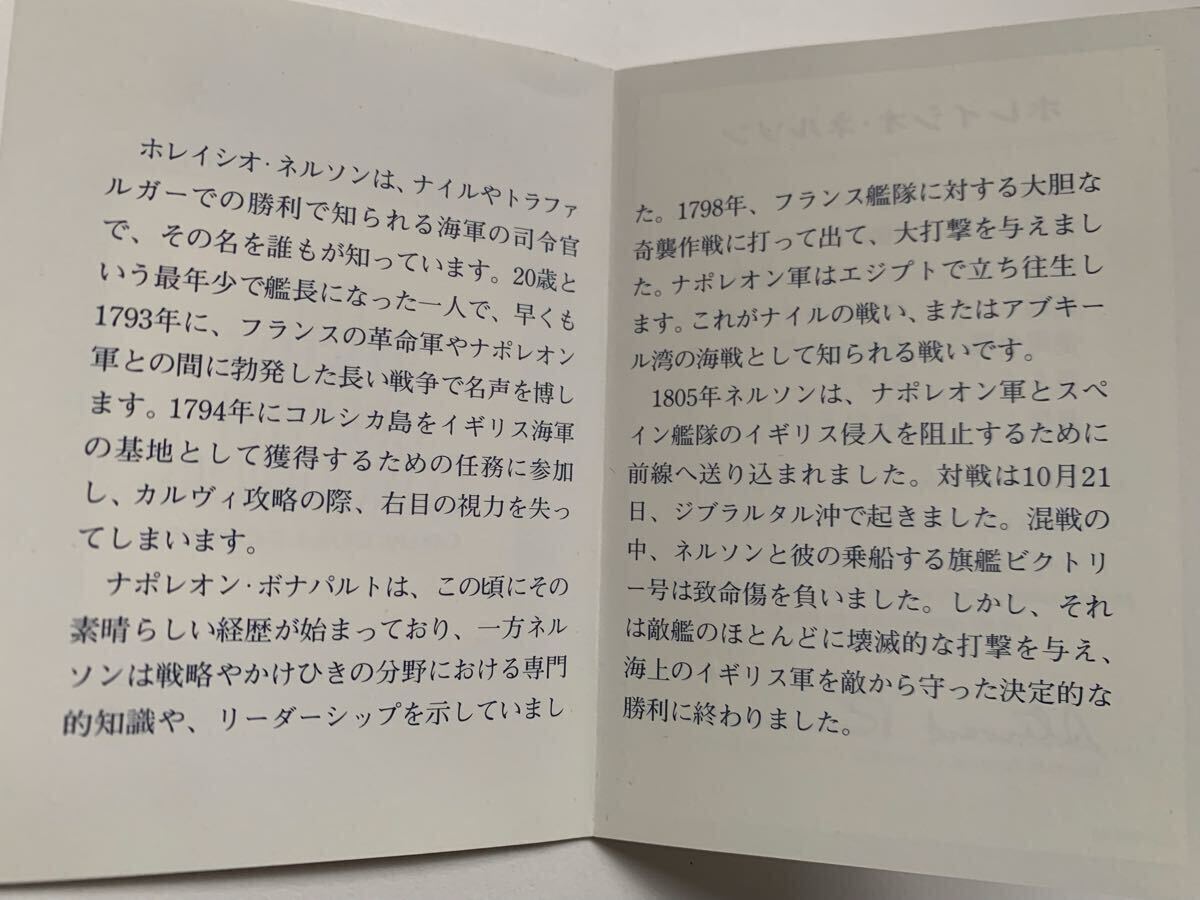 ホレイシオ・ネルソンは、ナイルやトラファ
ルガーでの勝利で知られる海軍の司令官
で、その名を誰もが知っています。20歳と
いう最年少で艦長になった一人で、早くも
1793年に、フランスの革命軍やナポレオン
軍との間に勃発した長い戦争で名声を博し
ます。1794年にコルシカ島をイギリス海軍
の基地として獲得するための任務に参加
し、カルヴィ攻略の際、右目の視力を失っ
てしまいます。
ナポレオン・ボナパルトは、この頃にその
素晴らしい経歴が始まっており、一方ネル
ソンは戦略やかけひきの分野における専門
的知識や、リーダーシップを示していまし
た。1798年、フランス艦隊に対する大胆な
奇襲作戦に打って出て、大打撃を与えまし
た。ナポレオン軍はエジプトで立ち往生し
ます。これがナイルの戦い、またはアブキー
ル湾の海戦として知られる戦いです。
1805年ネルソンは、ナポレオン軍とスペ
イン艦隊のイギリス侵入を阻止するために
前線へ送り込まれました。対戦は10月21
日、ジブラルタル沖で起きました。混戦の
中、ネルソンと彼の乗船する旗艦ビクトリ
ー号は致命傷を負いました。しかし、それ
は敵艦のほとんどに壊滅的な打撃を与え、
海上のイギリス軍を敵から守った決定的な
勝利に終わりました。